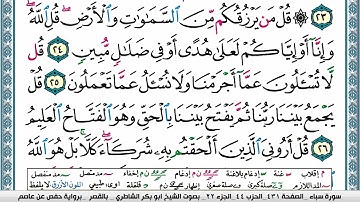 ٢٣ ۞ قُلْ مَن يَرْزُقُكُم مِّنَ ٱلسَّمَٰوَٰتِ وَٱلْأَرْضِ ۖ قُلِ ٱللَّهُ ۖ
وَإِنَّآ أَوْ إِيَّاكُمْ لَعَلَىٰ هُدًى أَوْ فِى ضَلَٰلٍ مُّبِينٍ ٢٤ قُل
لَّا تُسْـَٔلُونَ عَمَّآ أَجْرَمْنَا وَلَا نُسْـَٔلُ عَمَّا تَعْمَلُونَ ٢٥ قُلْ
يَجْمَعُ بَيْنَنَا رَبُّنَا ثُمَّ يَفْتَحُ بَيْنَنَا بِٱلْحَقِّ وَهُوَ ٱلْفَتَّاحُ ٱلْعَلِيمُ
٢٦ قُلْ أَرُونِىَ ٱلَّذِينَ أَلْحَقْتُم بِهِۦ شُرَكَآءَ ۖ كَلَّا ۚ بَلْ هُوَ ٱللَّهُ
سورة سباء - الصفحة ٤٣١ - الجزء ٢٢ - بصوت الشيخ ابو بكر الشاطري - بالقمر - برواية حفص عن عاصم